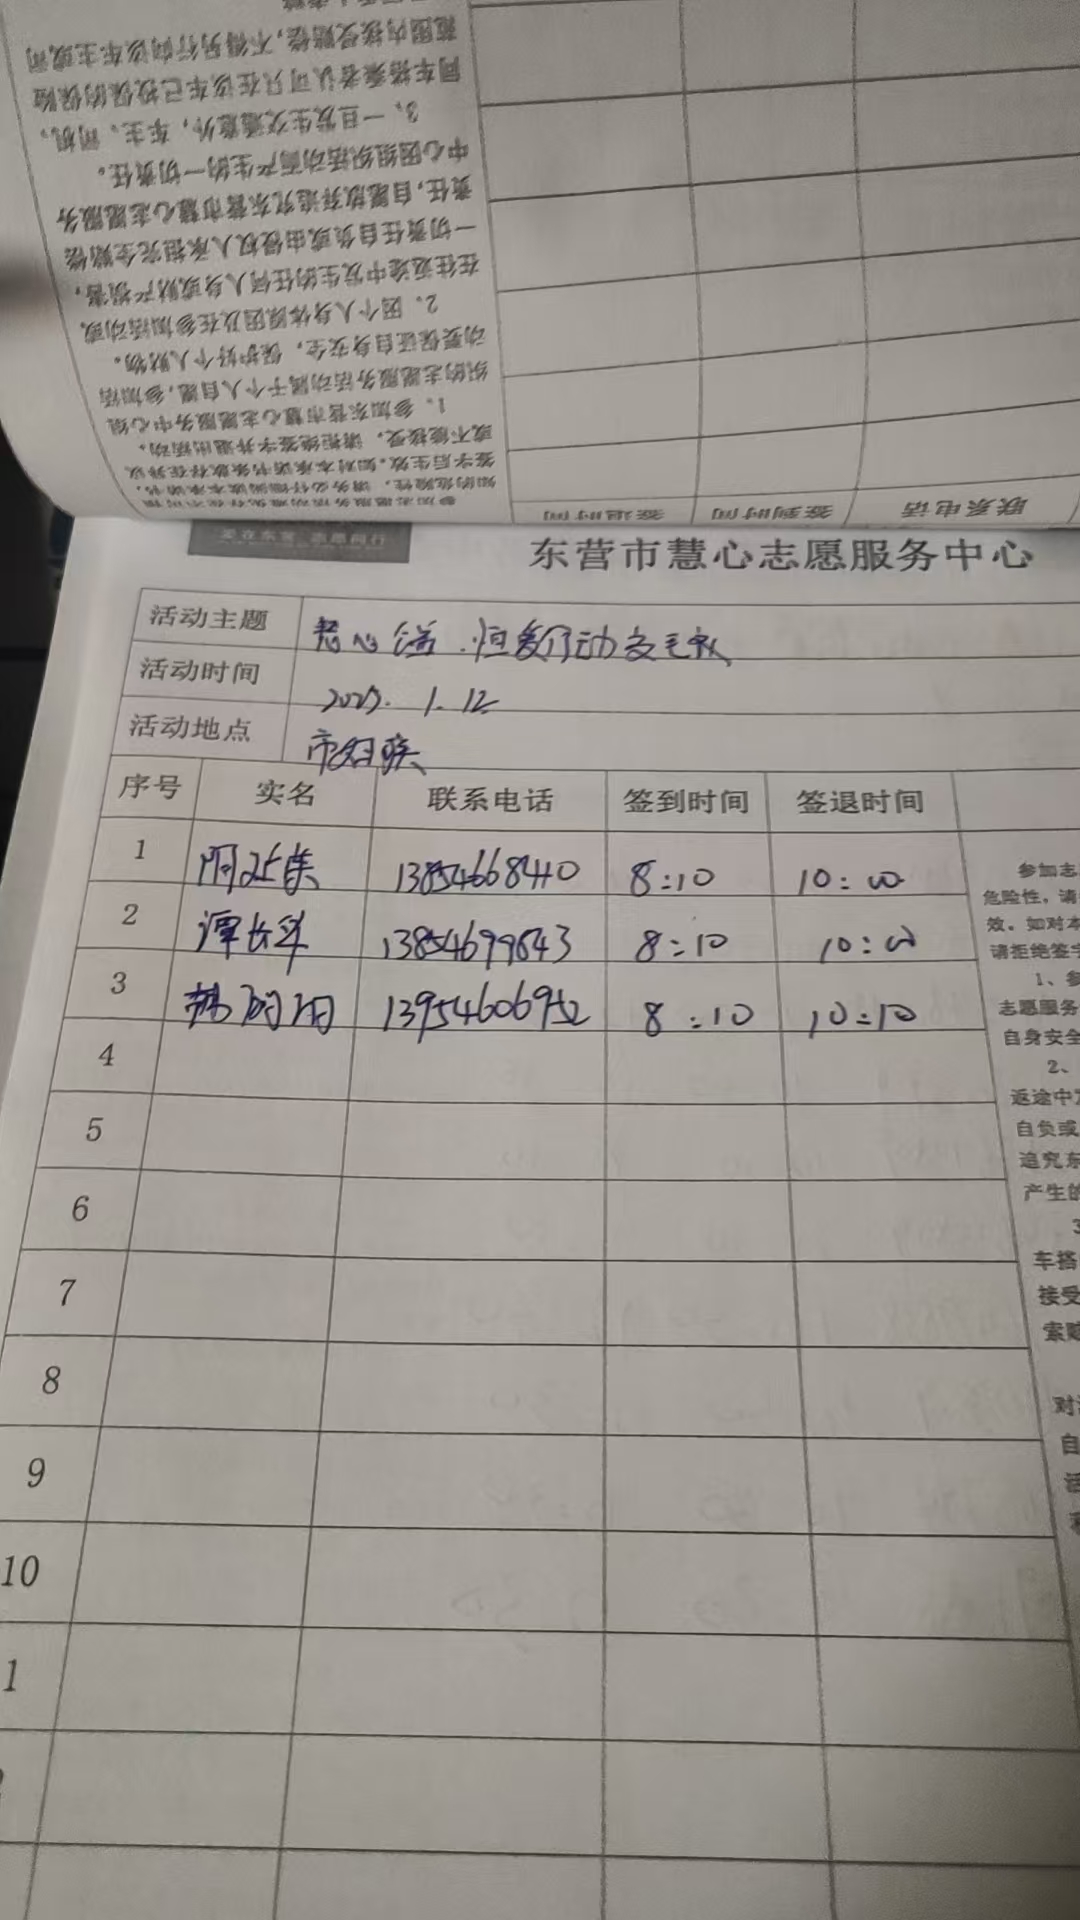 同车搭乘者认可只在该车已投保的保险
范围内接受赔偿，不得另行向该车主或司
3、一旦发生交通意外，车主、司机、
中心因组织活动而产生的一切责任。
责任，自愿放弃追究东营市慧心志愿服务
一切责任自负或由侵权人承担完全赔偿
在往返途中发生的任何人身或财产损害，
2、因个人身体原因及在参加活动或
动要保证自身安全，保护好个人财物。
织的志愿服务活动属于个人自愿，参加活
1、参加东营市慧心志愿服务中心组
或不能接受，请拒绝签字并退出活动。
签字后生效。如对本承诺书条款存在异议
知的危险性，请务必仔细阅读本承诺书，
参加志愿服务活动难免存在不可预
联系电话 签到时间 签退时间
爱在东营 志愿同行
东营市慧心志愿服务中心
活动主题 慧心 恒爱行动
活动时间 1.12
活动地点 市妇联
序号 实名 联系电话 签到时间 签退时间
1 13854668440 8:10 10:00
2 谭长华 13854699643 8:10 10:00
3 8:10 10:10
4
5
6
7
8
9
10
1
参加志
危险性，请
效。如对本
请拒绝签字
1、参
志愿服务
自身安全
2、
返途中
自负或
追究东
产生的
3
车搭
接受
索赔
对
自
活